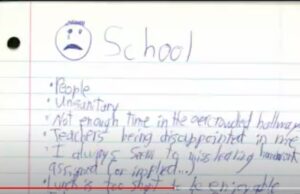 School
• People
• Unsanitary
• Not enough time in the overcrowded hallways
• Teachers being disappointed in me
• I always seem to miss homework
assigned (or implied...)
• Lunch is too short to be enjoyable